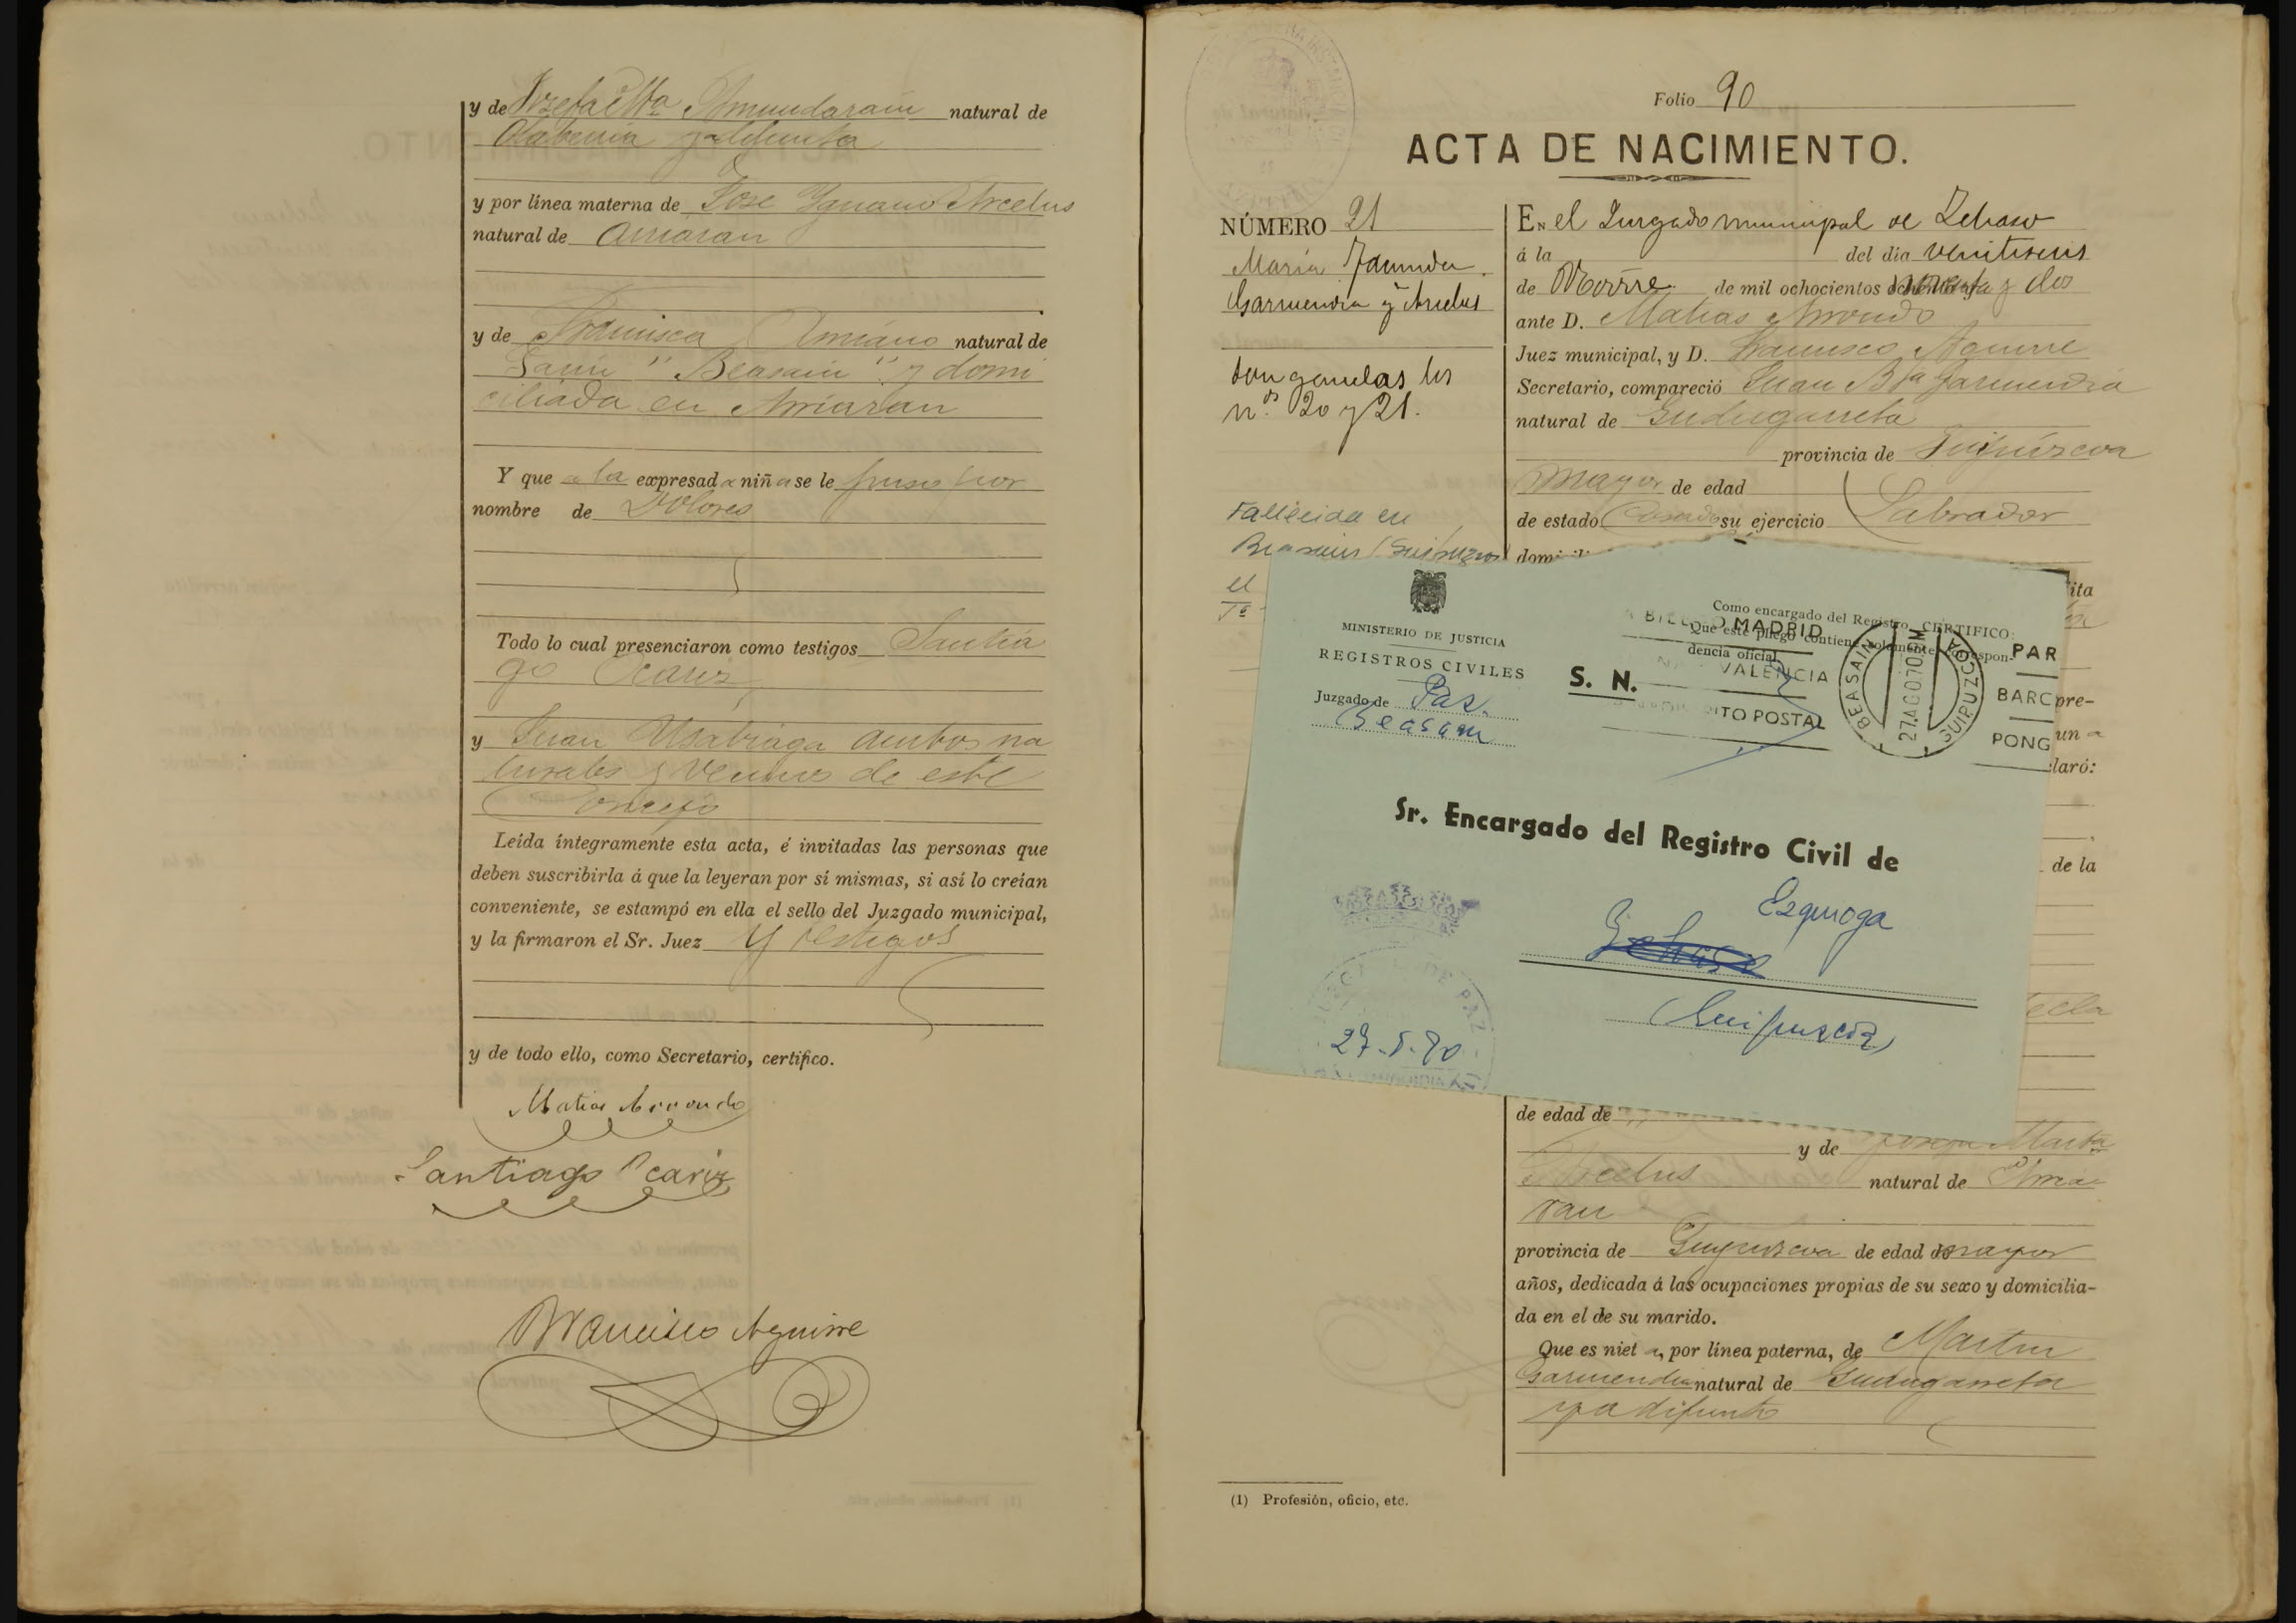 y de Josefa Mª Amundarain natural de
Olaberria ya difunta
y por línea materna de Jose Ygnacio Arcelus
natural de Arriaran
y de Francisca Amiano natural de
"Beasain" y domi
ciliada en Arriaran
Y que a la expresad a niñ a se le puso por
nombre de Dolores
Todo lo cual presenciaron como testigos Santia
go Ocariz
y Juan Usabiaga ambos na
turales y vecinos de este
Concejo
Leída íntegramente esta acta, é invitadas las personas que
deben suscribirla á que la leyeran por sí mismas, si así lo creían
conveniente, se estampó en ella el sello del Juzgado municipal,
y la firmaron el Sr. Juez y testigos
y de todo ello, como Secretario, certifico.
Matias Arrondo
Santiago Ocariz
Francisco Aguirre
Folio 90
ACTA DE NACIMIENTO.
NÚMERO 21
María Facunda
Garmendia y Arcelus
Son gemelas los
n.os 20 y 21.
Fallecida en
Beasain (Guipuzcoa)
el
En el Juzgado municipal de
á la del dia veintiseis
de de mil ochocientos noventa y dos
ante D. Matias Arrondo
Juez municipal, y D. Francisco Aguirre
Secretario, compareció Juan Bta Garmendia
natural de Gudugarreta
provincia de Guipúzcoa
mayor de edad
de estado Casado su ejercicio Labrador
MINISTERIO DE JUSTICIA
REGISTROS CIVILES
Juzgado de Paz.
Beasain
Como encargado del Registro, CERTIFICO:
Que este pliego contiene solamente correspon-
dencia oficial
S. N.
MADRID
VALENCIA
POSTAL
BEASAIN
27.AGO.70
GUIPUZCOA
PAR
BARC
PONG
Sr. Encargado del Registro Civil de
Ezquioga
Guipuzcoa
JUZGADO DE PAZ
ita
pre-
un a
laró:
de la
de edad de
y de Josefa Marta
Arcelus natural de Arria
ran
provincia de Guipuzcoa de edad mayor
años, dedicada á las ocupaciones propias de su sexo y domicilia-
da en el de su marido.
Que es niet a, por línea paterna, de Martin
Garmendia natural de Gudugarreta
ya difunto
(1) Profesión, oficio, etc.